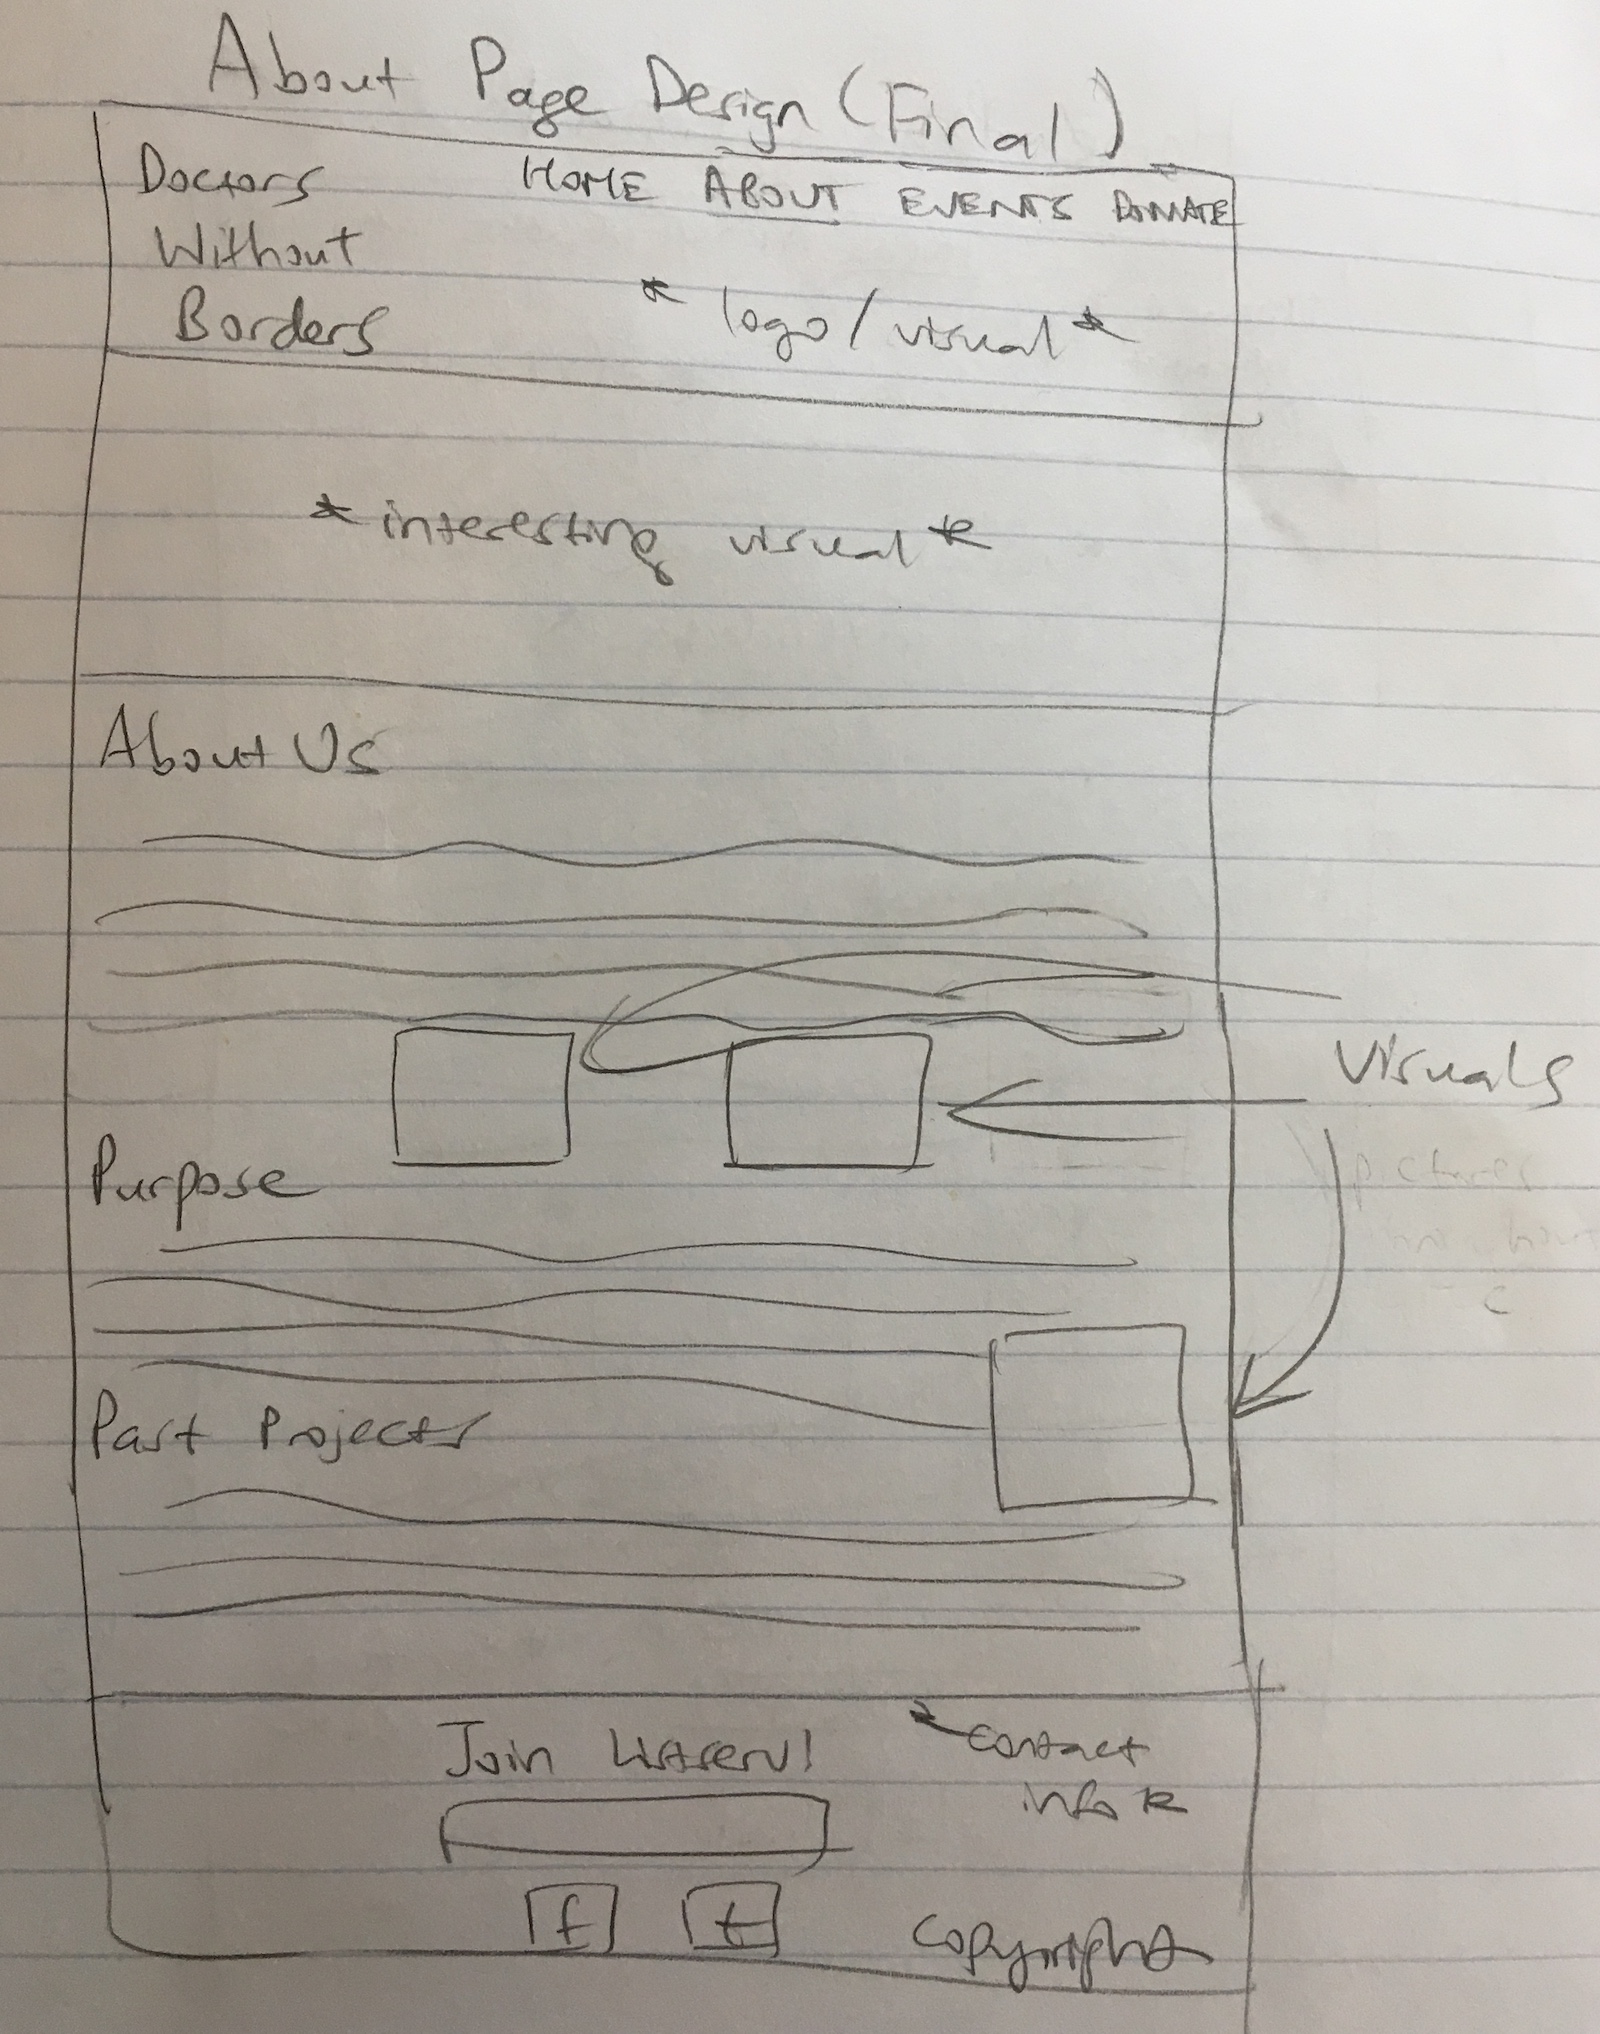 About Page Design (Final)
Doctors
Without
Borders
HOME ABOUT EVENTS DONATE
* logo/visual *
* interesting visual *
About Us
Visuals
pictures
Purpose
Past Projects
Join Listserv!
*contact
info *
f t
copyright